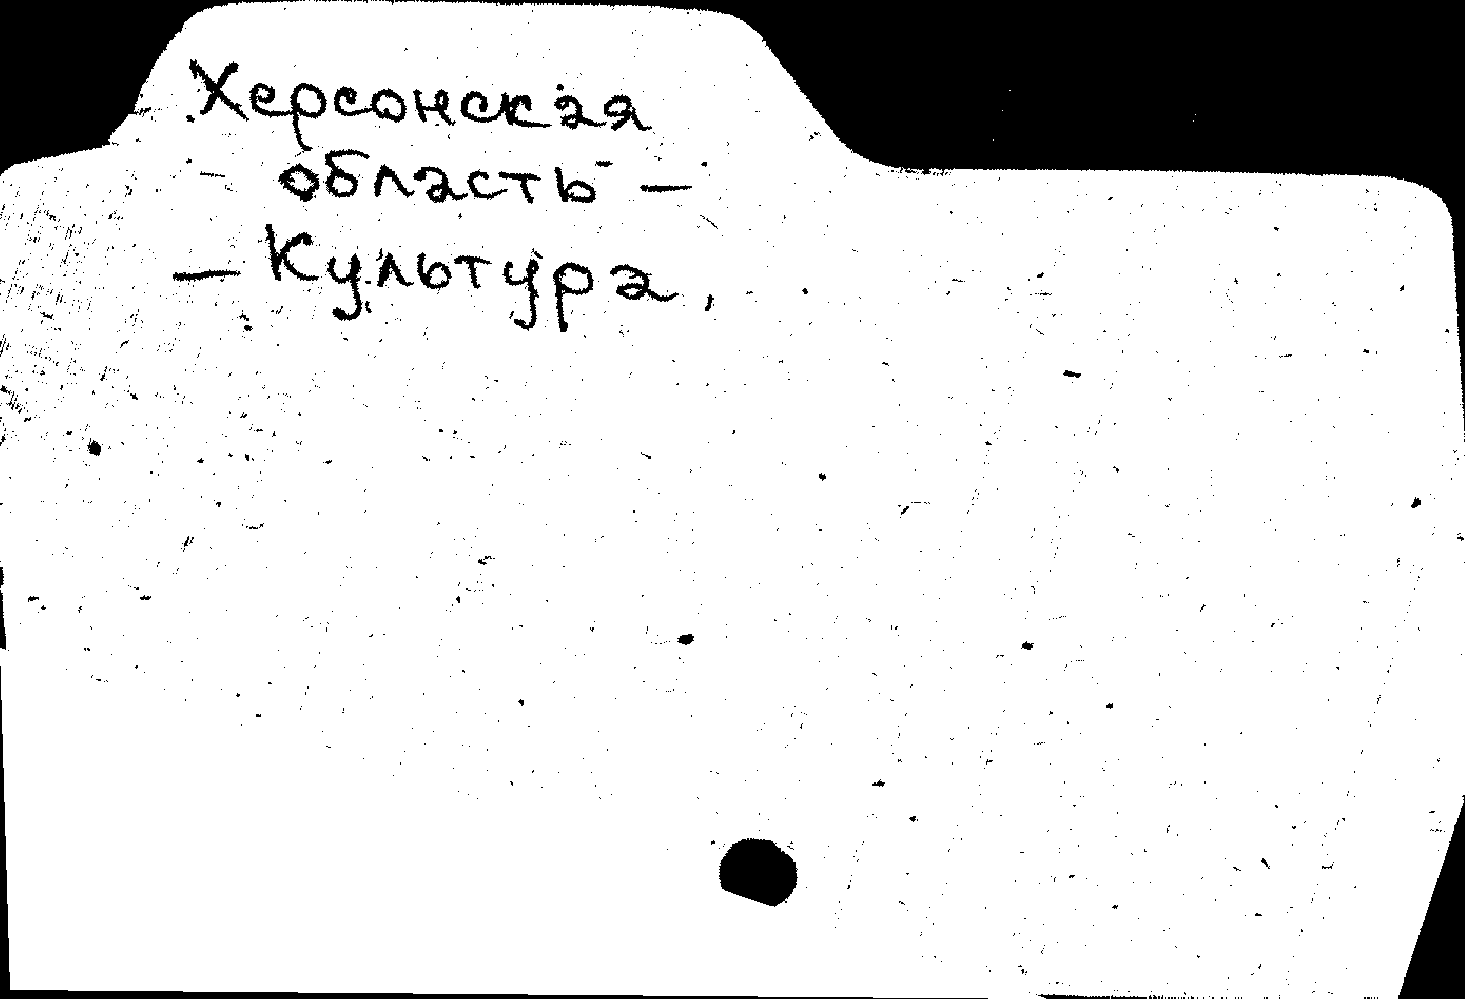 Херсонская
область —
— Культура,